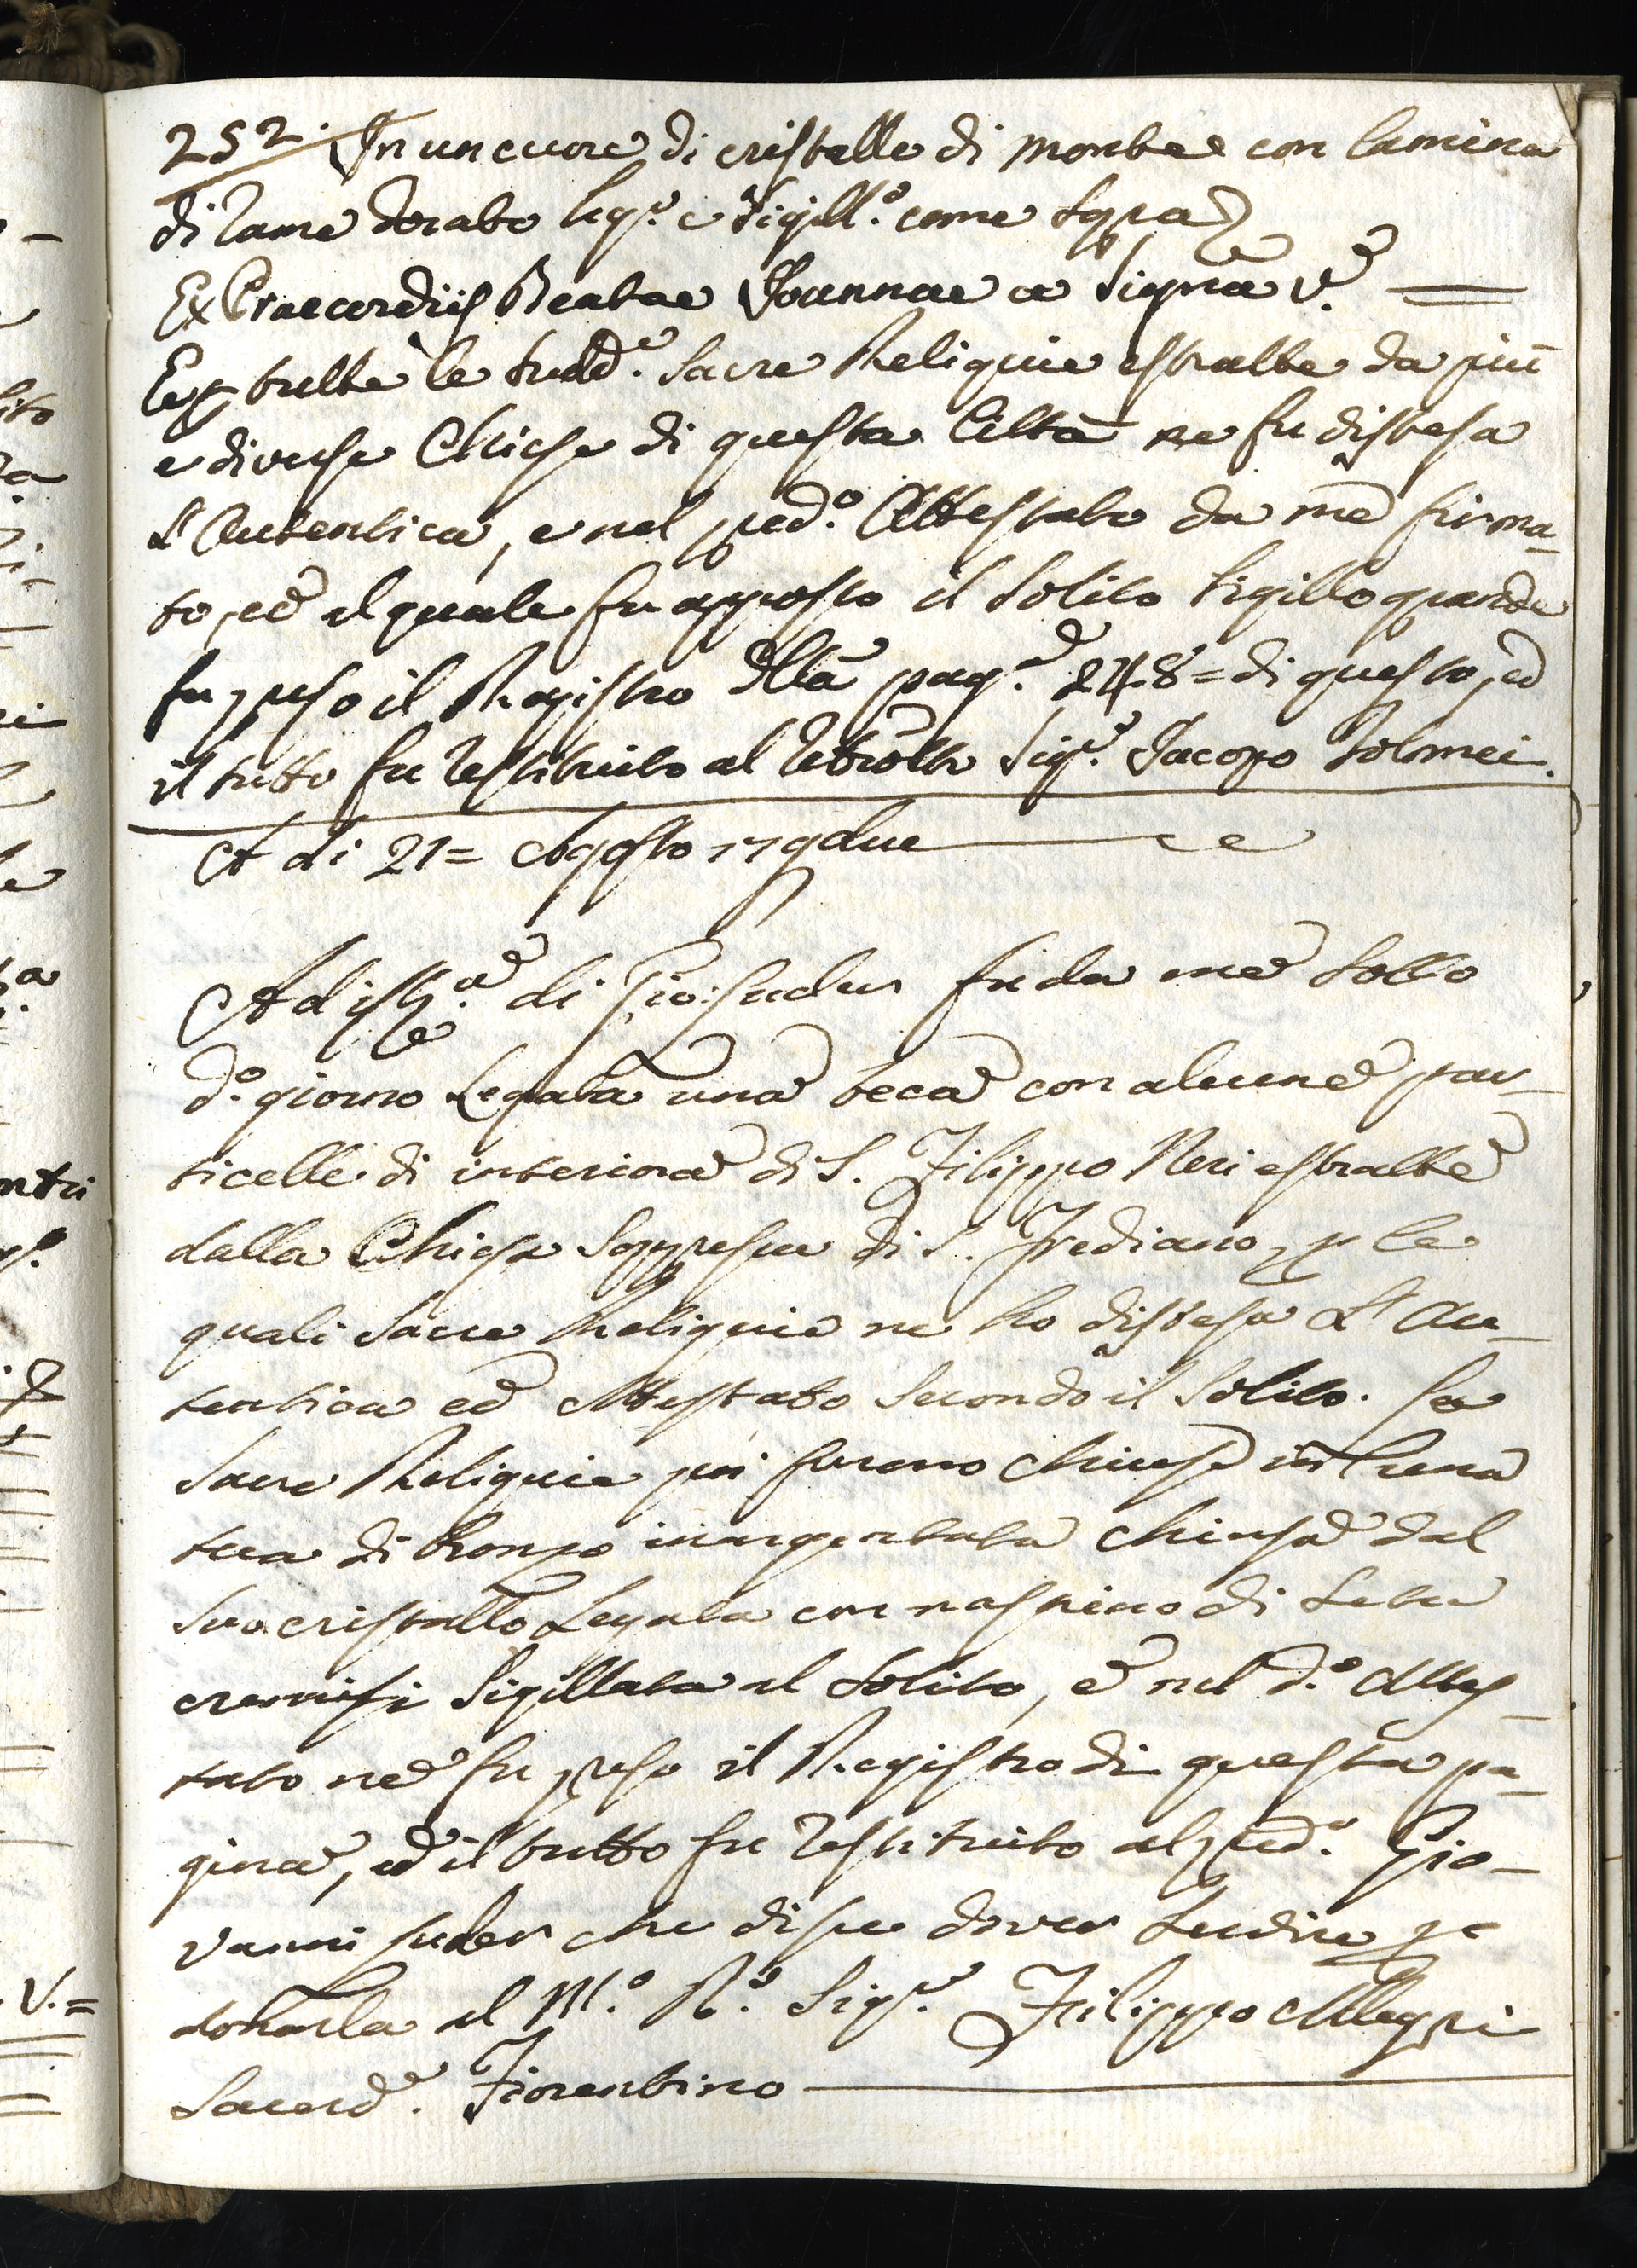 252. In un cuore di cristallo di monte e con lamina
di rame dorato leg.º e sigill.º come sopra
Ex Praecordiis Beatae Joannae a Signa V.
E p tutte le sudd.e Sacre Reliquie estratte da più
e diverse Chiese di questa Città ne fu distesa
L'Autentica, e nel pred.º Attestato da me firma-
to, ed al quale fu apposto il solito Sigillo grande
fu preso il Registro alla pag.a 248 = di questo, ed
il tutto fu restituito al Sig.r Jacopo Tolomei.
A di 21 = Agosto 179due
Ad ist.a di Gio: fu da me sotto
d.º giorno Legata una teca con alcune par-
ticelle di interiora di S. Filippo Neri estratte
dalla Chiesa Soppressa di S. Frediano, p le
quali Sacre Reliquie ne ho distesa L'Au-
tentica ed Attestato secondo il solito. Le
Sacre Reliquie poi furono chiuse in una
teca di bronzo inargentata chiusa dal
suo cristallo Legata con nastrino di seta
cremisi Sigillata al solito, e nel d.º Attes-
tato ne fu preso il Registro di questa pa-
gina, ed il tutto fu restituito al pred.º Gio-
vanni che disse dover servire p
donarla al M.º R.º Sig.r Filippo Allegri
Sacerd.e Fiorentino